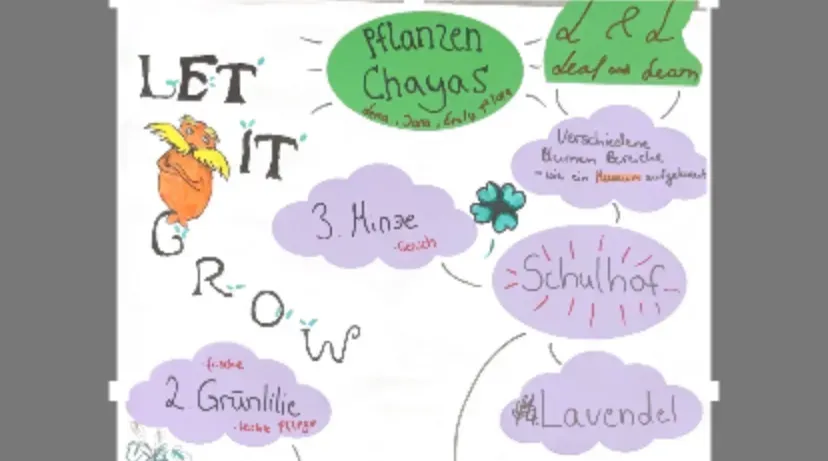 LET
IT
GROW
Pflanzen
Chayas
L & L
Leaf and Learn
Verschiedene
Blumen Bereiche
- wie ein Museum aufgebaut
3. Minze
Schulhof
2. Grünlilie
- leichte Pflege
Lavendel